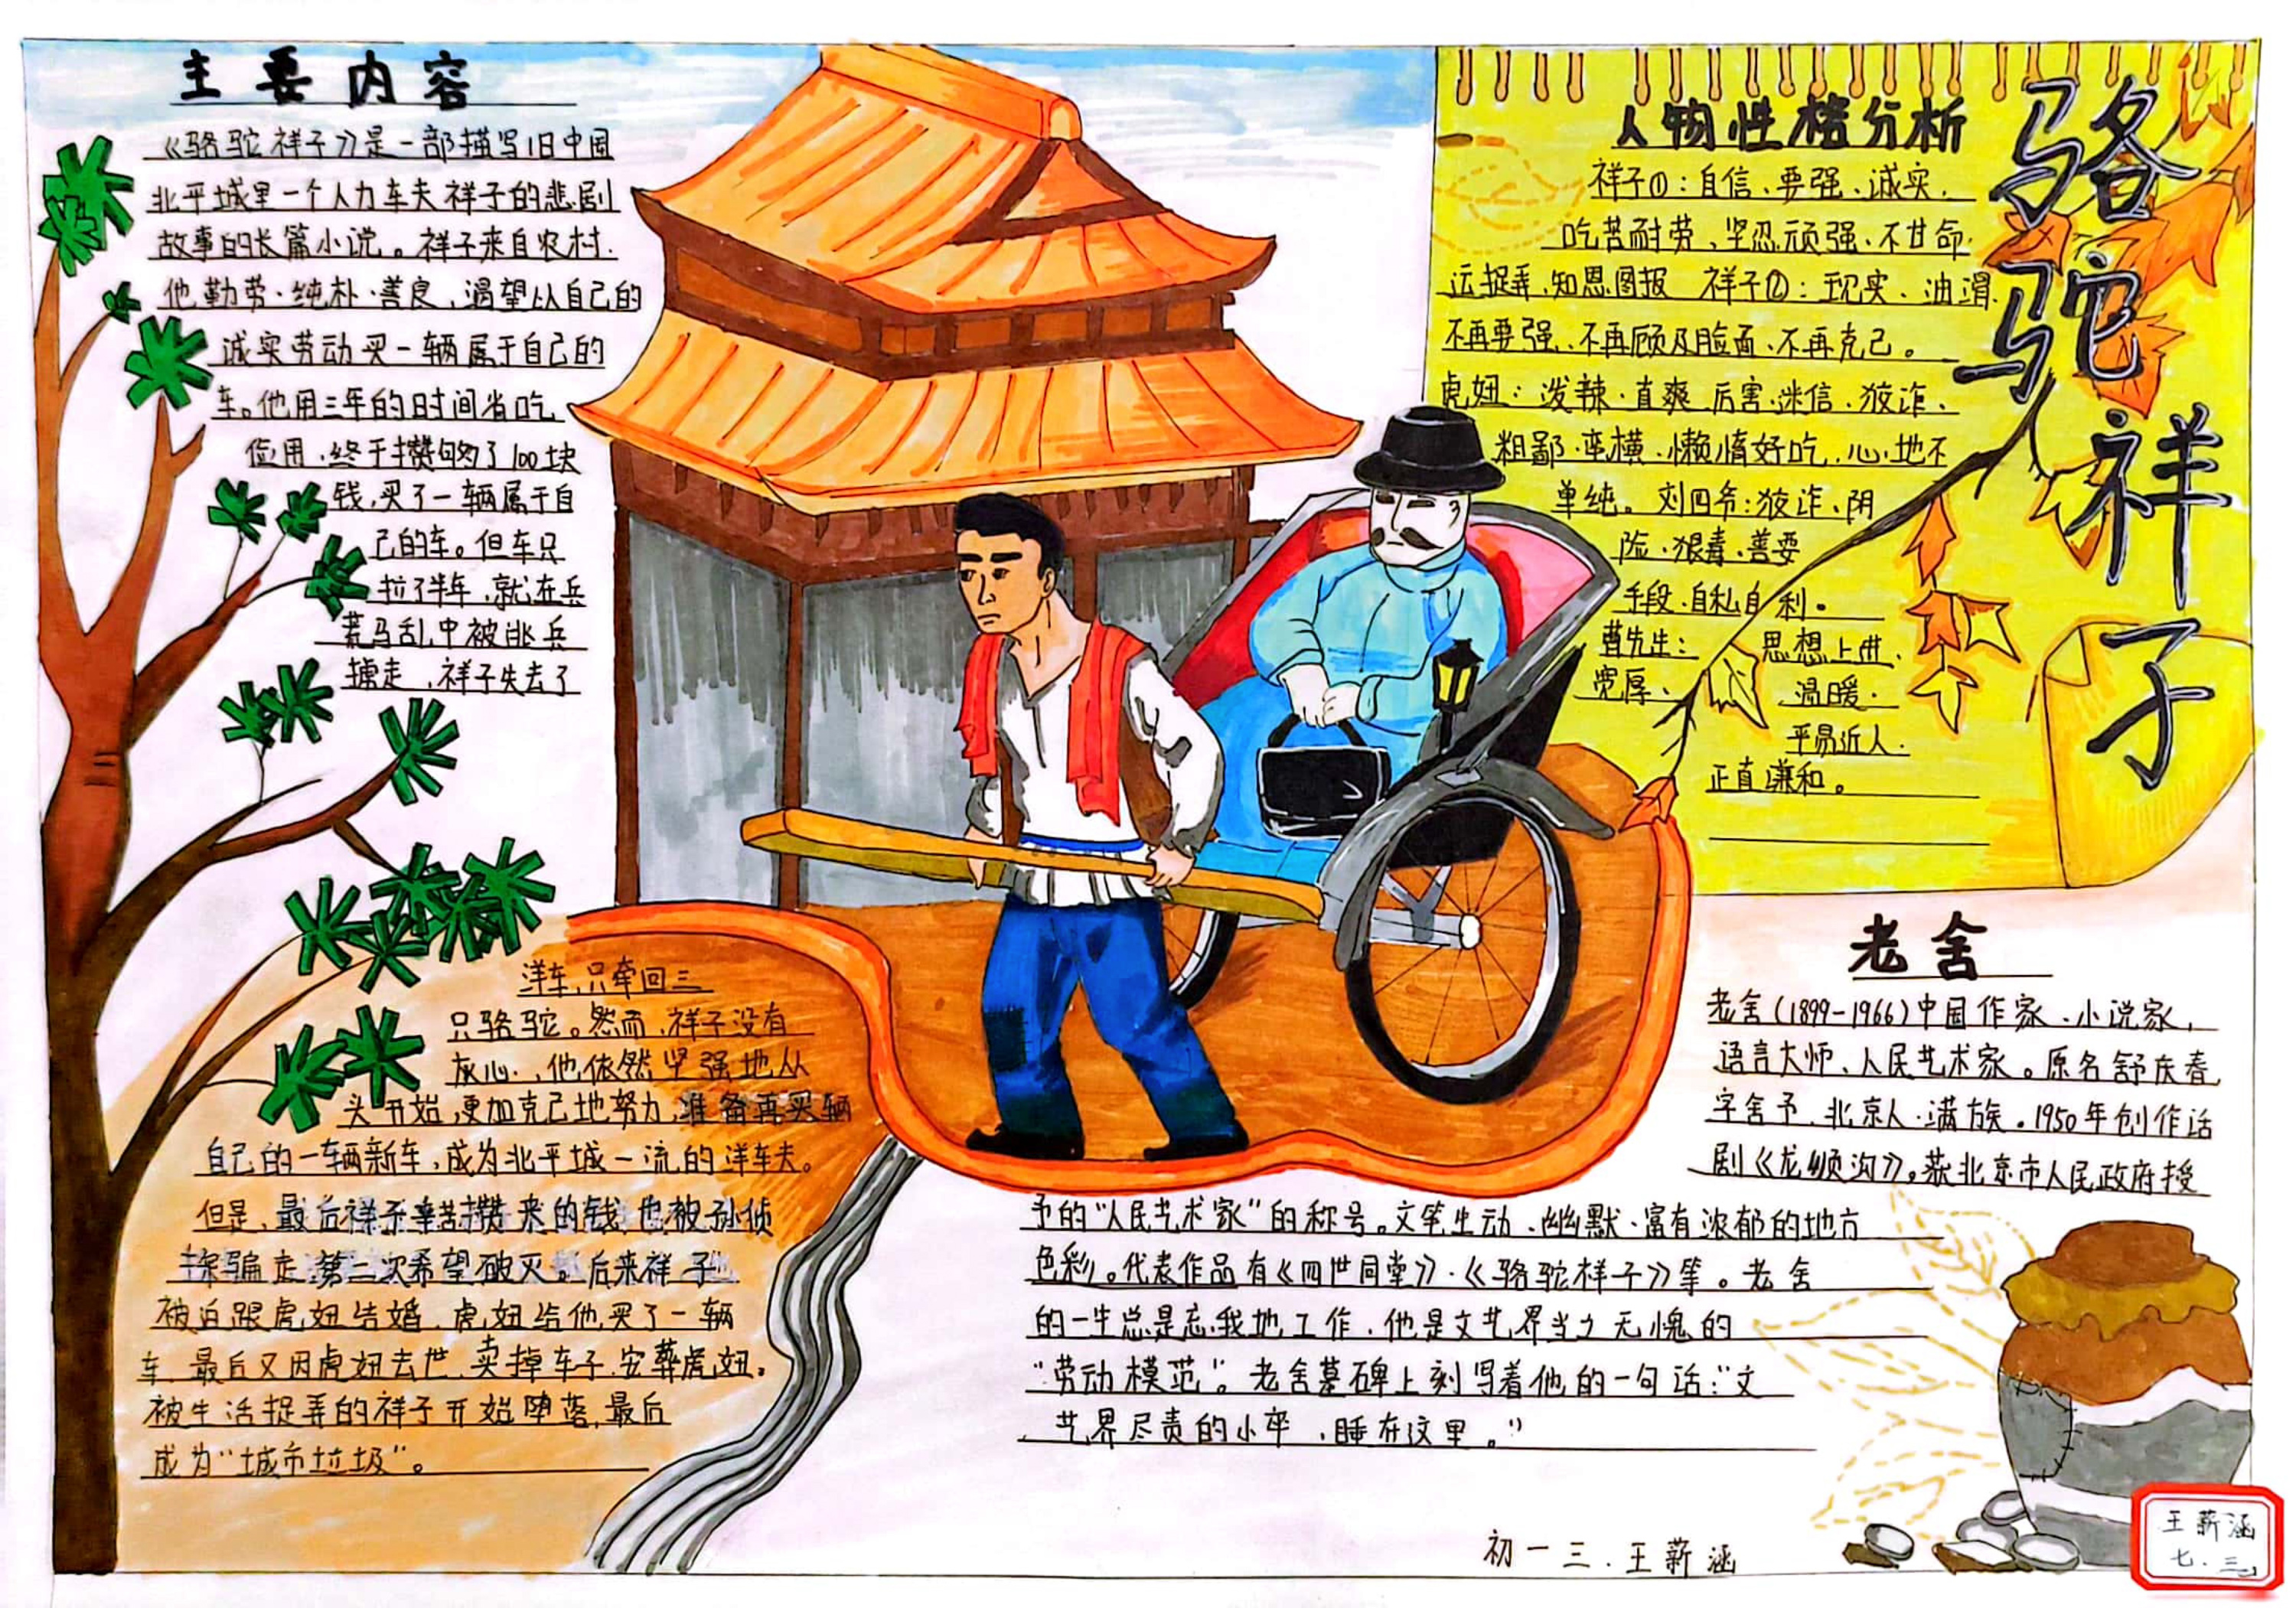 主要内容
《骆驼祥子》是一部描写旧中国
北平城里一个人力车夫祥子的悲剧
故事的长篇小说。祥子来自农村.
他勤劳·纯朴·善良,渴望以自己的
诚实劳动买一辆属于自己的
车。他用三年的时间省吃
俭用,终于攒够了100块
钱,买了一辆属于自
己的车。但车只
拉了半年,就在兵
荒马乱中被逃兵
掳走,祥子失去了
洋车,只牵回三
只骆驼。然而,祥子没有
灰心,他依然坚强地从
头开始,更加克己地努力,准备再买辆
自己的一辆新车,成为北平城一流的洋车夫。
但是,最后祥子辛苦攒来的钱也被孙侦
探骗走,第二次希望破灭。后来祥子
被迫跟虎妞结婚,虎妞给他买了一辆
车,最后又因虎妞去世,卖掉车子,安葬虎妞。
被生活捉弄的祥子开始堕落,最后
成为“城市垃圾”。
骆驼祥子
人物性格分析
祥子①:自信、要强、诚实、
吃苦耐劳、坚忍顽强、不甘命
运捉弄、知恩图报 祥子②:现实、油滑、
不再要强、不再顾及脸面、不再克己。
虎妞:泼辣·直爽 厉害·迷信·狡诈、
粗鄙·蛮横·懒惰好吃,心地不
单纯。刘四爷:狡诈、阴
险·狠毒·善耍
手段·自私自利。
曹先生: 思想上进、
宽厚、 温暖·
平易近人、
正直谦和。
老舍
老舍(1899-1966)中国作家、小说家,
语言大师、人民艺术家。原名舒庆春,
字舍予,北京人·满族。1950年创作话
剧《龙须沟》。获北京市人民政府授
予的“人民艺术家”的称号。文笔生动、幽默·富有浓郁的地方
色彩。代表作品有《四世同堂》·《骆驼祥子》等。老舍
的一生总是忘我地工作,他是文艺界当之无愧的
“劳动模范”。老舍墓碑上刻写着他的一句话:“文
艺界尽责的小卒,睡在这里。”
初一三.王薪涵
王薪涵
七.三